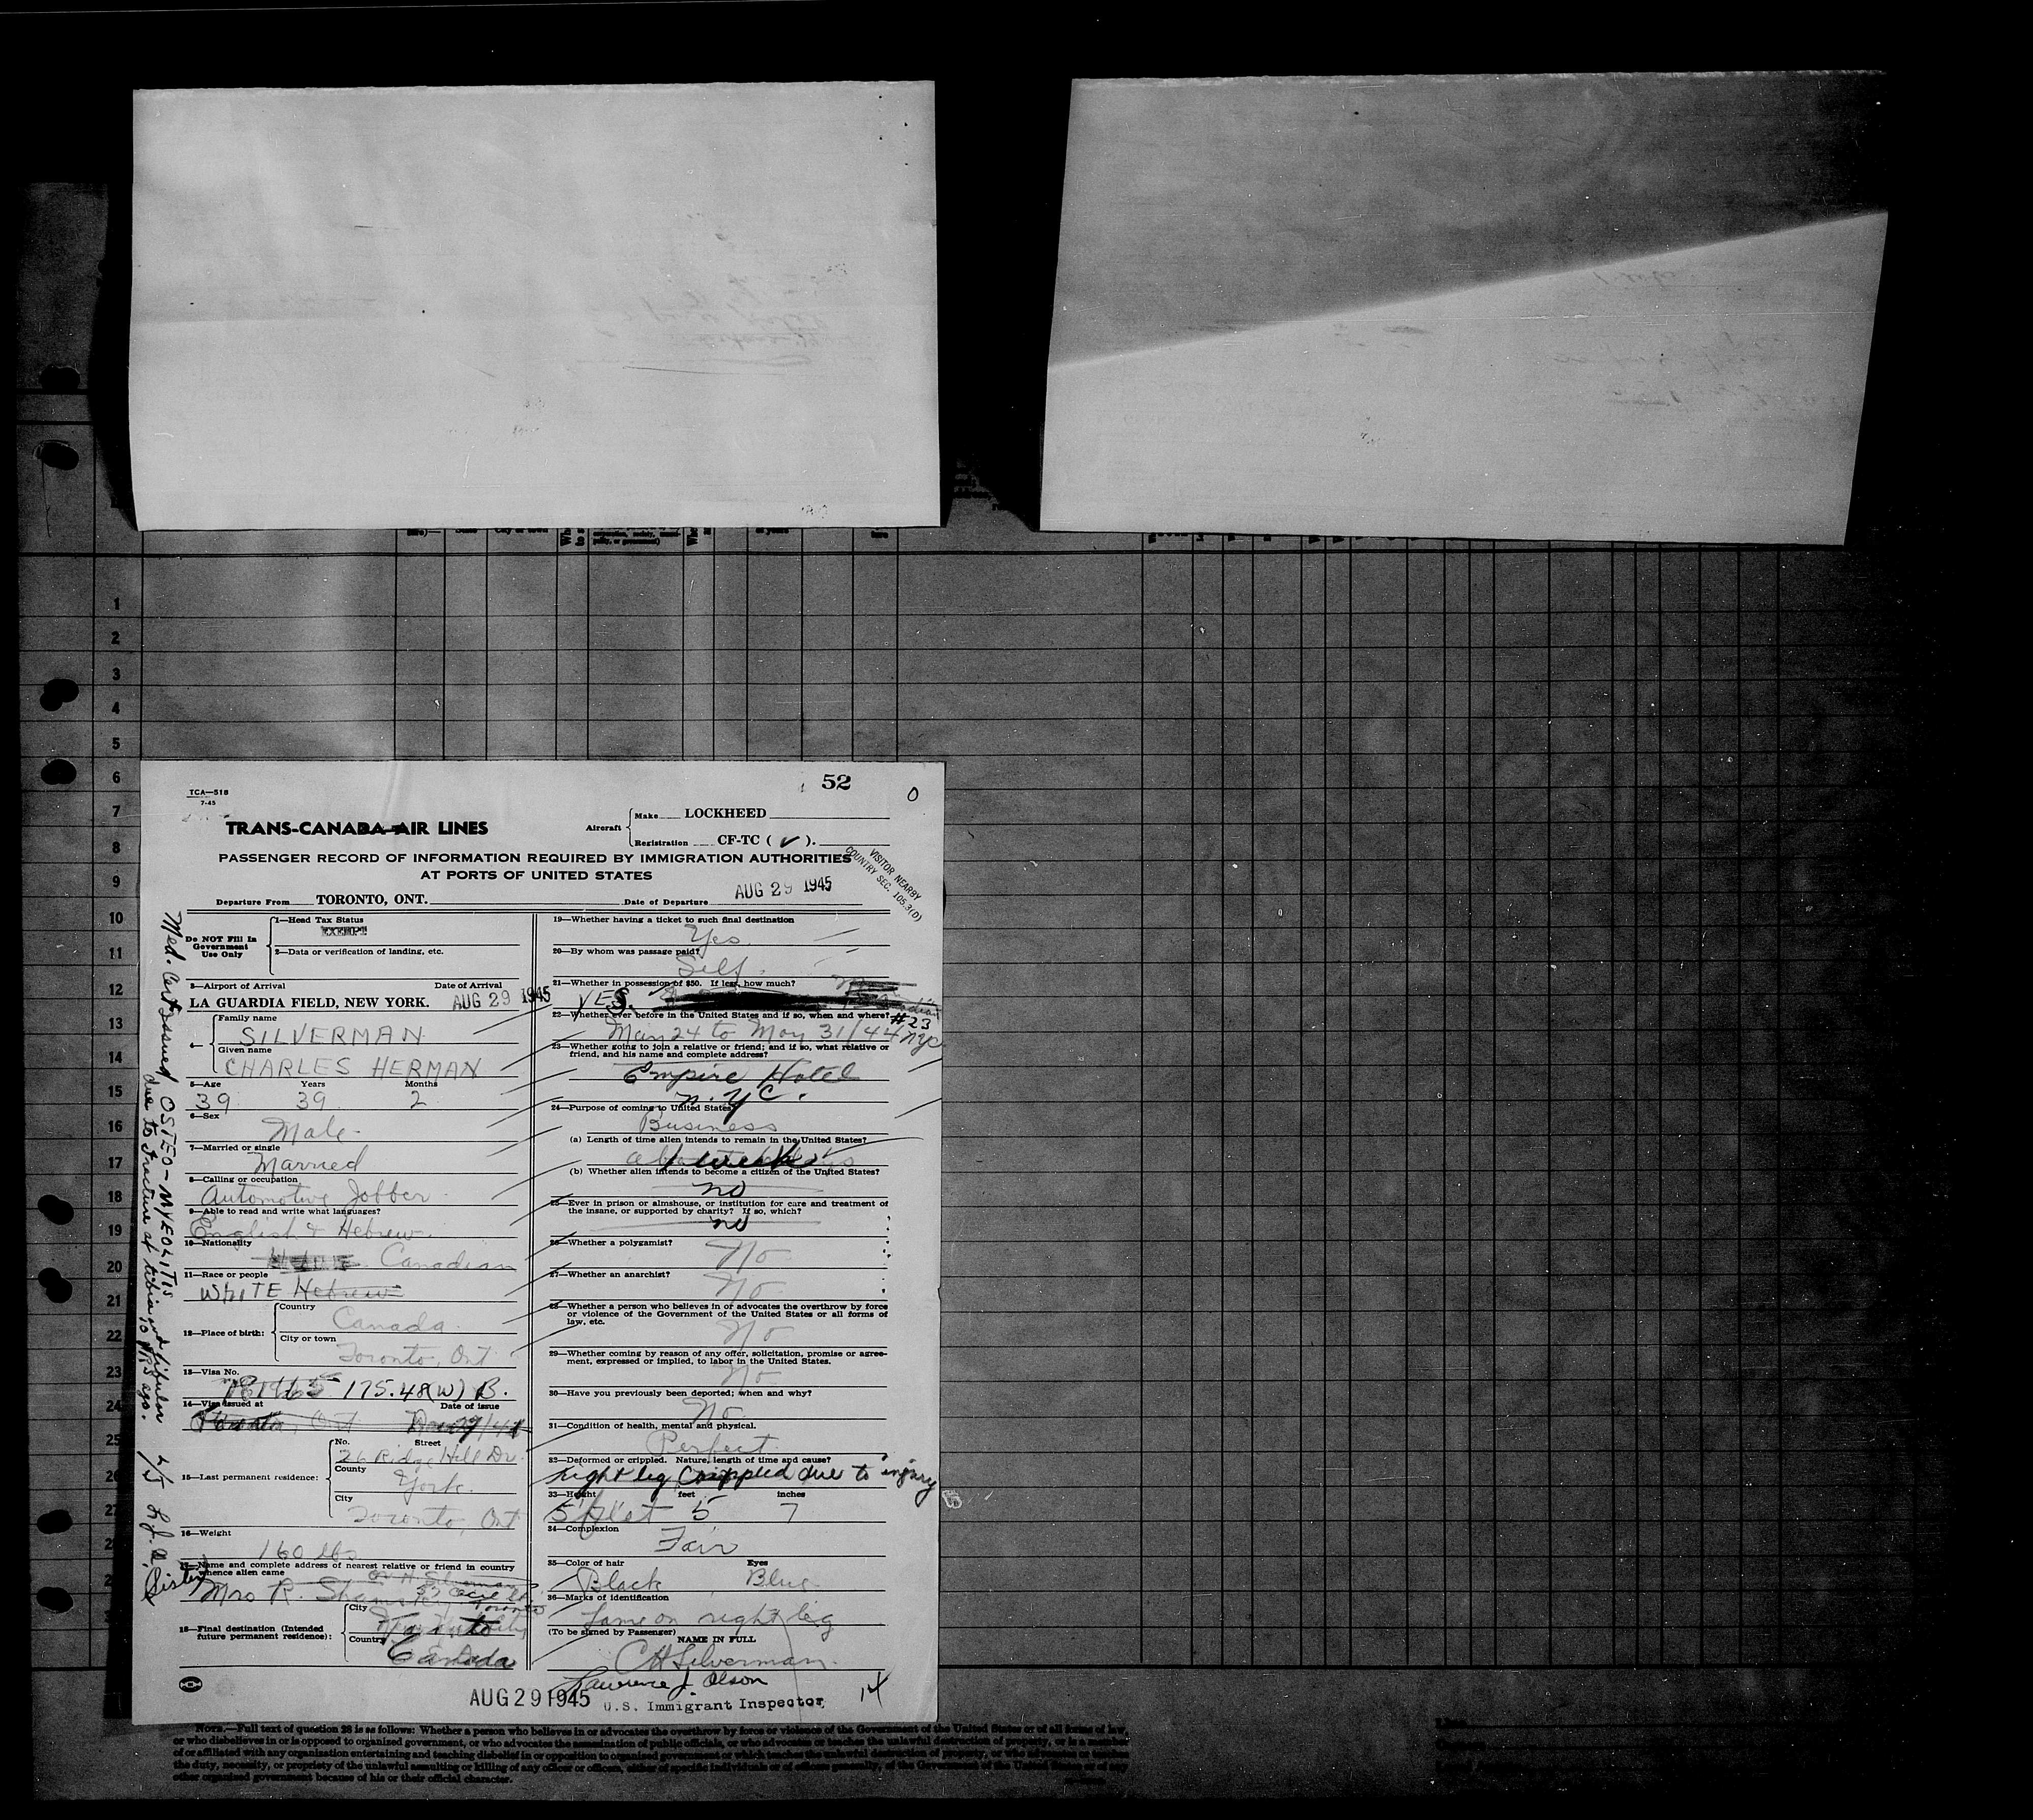 52
0
TCA—518
7-45
TRANS-CANADA AIR LINES
Aircraft
Make LOCKHEED
Registration CF-TC ( ✓ ).
PASSENGER RECORD OF INFORMATION REQUIRED BY IMMIGRATION AUTHORITIES
AT PORTS OF UNITED STATES
VISITOR NEARBY
COUNTRY SEC. 105.3(0)
Departure From TORONTO, ONT. Date of Departure AUG 29 1945
Do NOT Fill In
Government
Use Only
1—Head Tax Status
EXEMPT
2—Data or verification of landing, etc.
3—Airport of Arrival Date of Arrival
LA GUARDIA FIELD, NEW YORK. AUG 29 1945
4—
Family name
SILVERMAN
Given name
CHARLES HERMAN
5—Age Years Months
39 39 2
6—Sex
Male
7—Married or single
Married
8—Calling or occupation
Automotive Jobber
9—Able to read and write what languages?
English & Hebrew
10—Nationality
Canadian
11—Race or people
WHITE Hebrew
12—Place of birth:
Country
Canada
City or town
Toronto, Ont
13—Visa No.
175.48(W) B.
14—Visa issued at Date of issue
Toronto, Ont
15—Last permanent residence:
No. Street
26 Ridge Hill Dr.
County
York
City
Toronto, Ont
16—Weight
160 lbs
17—Name and complete address of nearest relative or friend in country
whence alien came
Sister
Mrs R. Toronto
18—Final destination (Intended
future permanent residence):
City
Toronto
Country
Canada
19—Whether having a ticket to such final destination
Yes
20—By whom was passage paid?
Self
21—Whether in possession of $50. If less, how much?
YES.
22—Whether ever before in the United States and if so, when and where?
#23
May 24 to May 31/44 NYC
23—Whether going to join a relative or friend; and if so, what relative or
friend, and his name and complete address?
Empire Hotel
N.Y.C.
24—Purpose of coming to United States?
Business
(a) Length of time alien intends to remain in the United States?
1 week
(b) Whether alien intends to become a citizen of the United States?
no
25—Ever in prison or almshouse, or institution for care and treatment of
the insane, or supported by charity? If so, which?
no
26—Whether a polygamist?
No
27—Whether an anarchist?
No
28—Whether a person who believes in or advocates the overthrow by force
or violence of the Government of the United States or all forms of
law, etc.
No
29—Whether coming by reason of any offer, solicitation, promise or agree-
ment, expressed or implied, to labor in the United States.
No
30—Have you previously been deported; when and why?
No
31—Condition of health, mental and physical.
Perfect
32—Deformed or crippled. Nature, length of time and cause?
right leg Crippled due to injury
33—Height feet inches
5 7
34—Complexion
Fair
35—Color of hair Eyes
Black Blue
36—Marks of identification
Lame on right leg
(To be signed by Passenger)
NAME IN FULL
CH Silverman
Lawrence J. Olson
AUG 29 1945 U.S. Immigrant Inspector
14
Med. Cert Issued OSTEO-MYEOLITIS
due to fracture of tibia and fibular 10 YRS ago.
1
2
3
4
5
6
7
8
9
10
11
12
13
14
15
16
17
18
19
20
21
22
23
24
25
26
27
NOTE.—Full text of question 28 is as follows: Whether a person who believes in or advocates the overthrow by force or violence of the Government of the United States or of all forms of law,
or who disbelieves in or is opposed to organized government, or who advocates the assassination of public officials, or who advocates or teaches the unlawful destruction of property, or is a member
of or affiliated with any organization entertaining and teaching disbelief in or opposition to organized government or which teaches the unlawful destruction of property, or who advocates or teaches
the duty, necessity, or propriety of the unlawful assaulting or killing of any officer or officers, either of specific individuals or of officers generally, of the Government of the United States or of any
other organized government because of his or their official character.